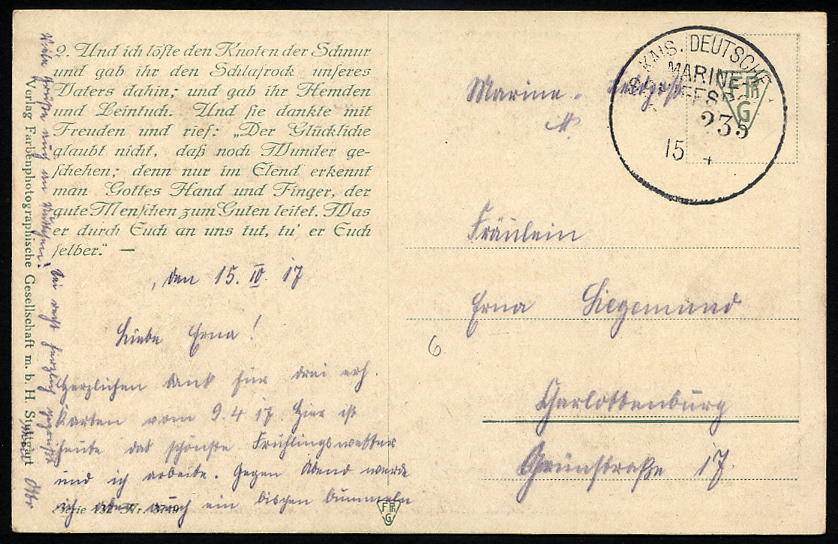 2. Und ich löste den Knoten der Schnur
und gab ihr den Schlafrock unseres
Vaters dahin; und gab ihr Hemden
und Leintuch. Und sie dankte mit
Freuden und rief: „Der Glückliche
glaubt nicht, daß noch Wunder ge-
schehen; denn nur im Elend erkennt
man Gottes Hand und Finger, der
gute Menschen zum Guten leitet. Was
er durch Euch an uns tut, tu' er Euch
selber.“ —
den 15. IV. 17
Liebe Erna!
Herzlichen Dank für drei erh.
Karten vom 9.4.17. Hier ist
heute das schönste Frühlingswetter
und ich arbeite. Gegen Abend werde
ich aber auch ein bischen bummeln
Serie 132 Nr. 3749
FPGG
Viele Grüße auch an
Sei recht herzlich gegrüßt
Otto
Verlag Farbenphotographische Gesellschaft m. b. H. Stuttgart
Marine-Feldpost
KAIS. DEUTSCHE
MARINE-
SCHIFFSPOST
235
15 4
Fräulein
Erna Siegemund
6
Charlottenburg
Grünstraße 17.